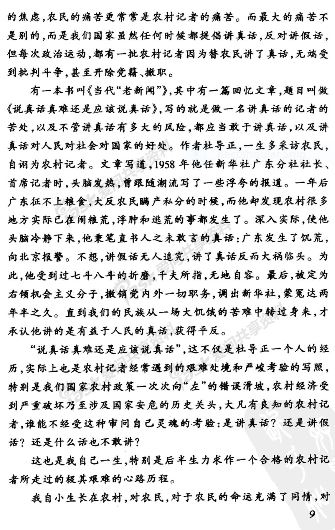 的焦虑,农民的痛苦更常常是农村记者的痛苦。而最大的痛苦不
是别的,而是我们国家虽然任何时候都提倡讲真话,反对讲假话,
但每次政治运动,都有一批农村记者因为替农民讲了真话,无端受
到批判斗争,甚至开除党籍、撤职。
有一本书叫《当代“老新闻”》,其中有一篇回忆文章,题目叫做
《说真话真难还是应该说真话》,写的就是做一名讲真话的记者的
苦处,以及不管讲真话有多大的风险,都应当敢于讲真话,以及讲
真话对人民对社会对国家的好处。作者杜导正,一生多采访农民,
自诩为农村记者。文章写道,1958年他任新华社广东分社社长、
首席记者时,头脑发热,曾跟随潮流写了一些浮夸的报道。一年后
广东征不上粮食,大反农民瞒产私分的时候,而他却发现农村很多
地方实际已在闹粮荒,浮肿和逃荒的事都发生了。深入实际,使他
头脑冷静下来,他秉笔直书人之未敢言的真话:广东发生了饥荒,
向北京报警。不想,讲假话无人追究,讲了真话反而大祸临头。为
此,他受到过七斗八斗的折磨,千夫所指,无地自容。最后,被定为
右倾机会主义分子,撤销党内外一切职务,调出新华社,蒙冤达两
年半之久。直到我们的民族从一场大饥饿的苦难中转过身来,才
承认他讲的是有益于人民的真话,获得平反。
“说真话真难还是应该说真话”,这不仅是杜导正一个人的经
历,实际上也是农村记者经常遇到的艰难处境和严峻考验的写照,
特别是我们国家农村政策一次次向“左”的错误滑坡,农村经济受
到严重破坏乃至涉及国家安危的历史关头,大凡有良知的农村记
者,谁能不经受这种审问自己灵魂的考验:是讲真话?还是讲假
话?还是什么话也不敢讲?
这也是我自己一生,特别是后半生力求作一个合格的农村记
者所走过的极其艰难的心路历程。
我自小生长在农村,对农民,对于农民的命运充满了同情,对
9